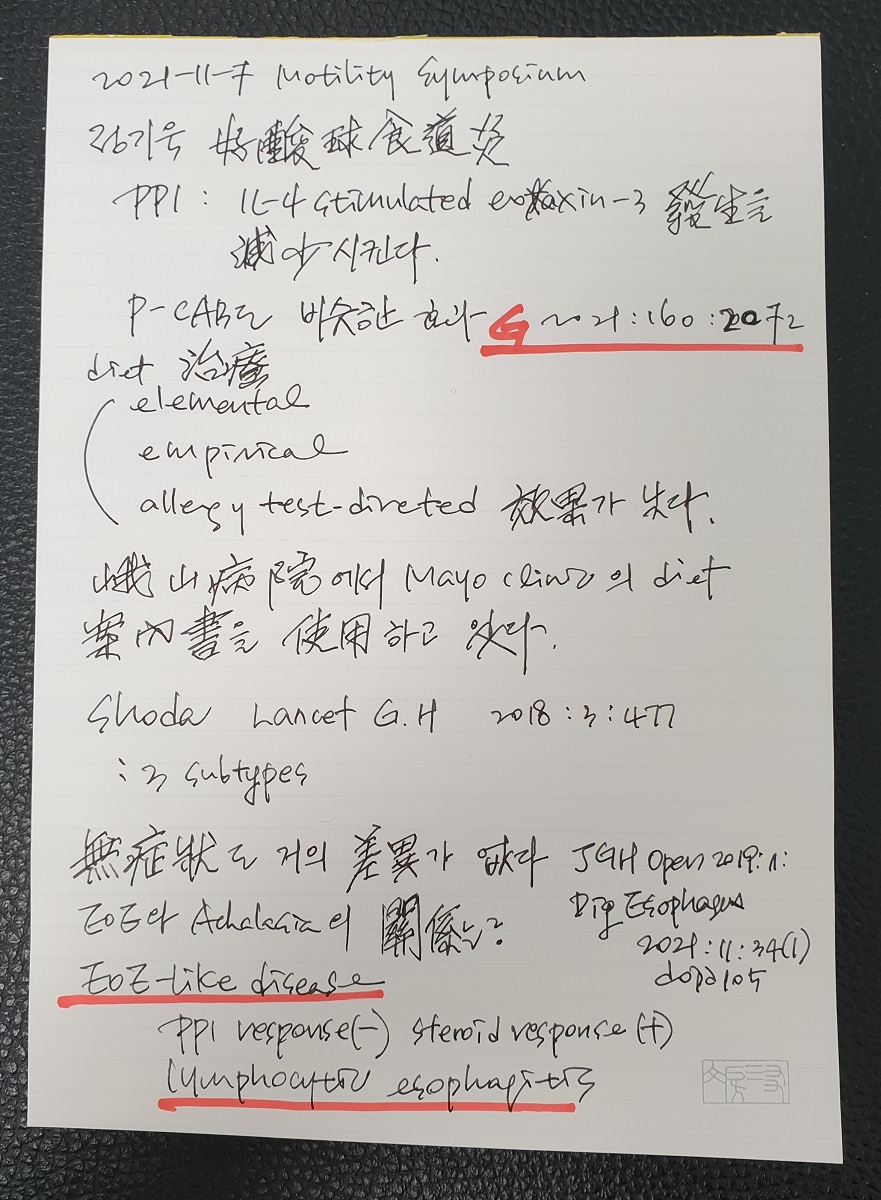 2021-11-7 Motility Symposium
정기욱 好酸球食道炎
PPI : IL-4 stimulated eotaxin-3 發生을
減少시킨다.
P-CAB도 비슷한 효과 G 2021:160:2072
diet 治療
elemental
empirical
allergy test-directed 效果가 낮다.
峨山病院에서 Mayo clinic의 diet
案內書을 使用하고 있다.
Shoda Lancet G.H 2018:3:477
: 3 subtypes
無症狀도 거의 差異가 없다 JGH Open 2019:1:
EoE와 Achalasia의 關係는? Dig Esophagus
2021:11:34(1)
doaa105
EoE-like disease
PPI response(-) steroid response(+)
lymphocytic esophagitis